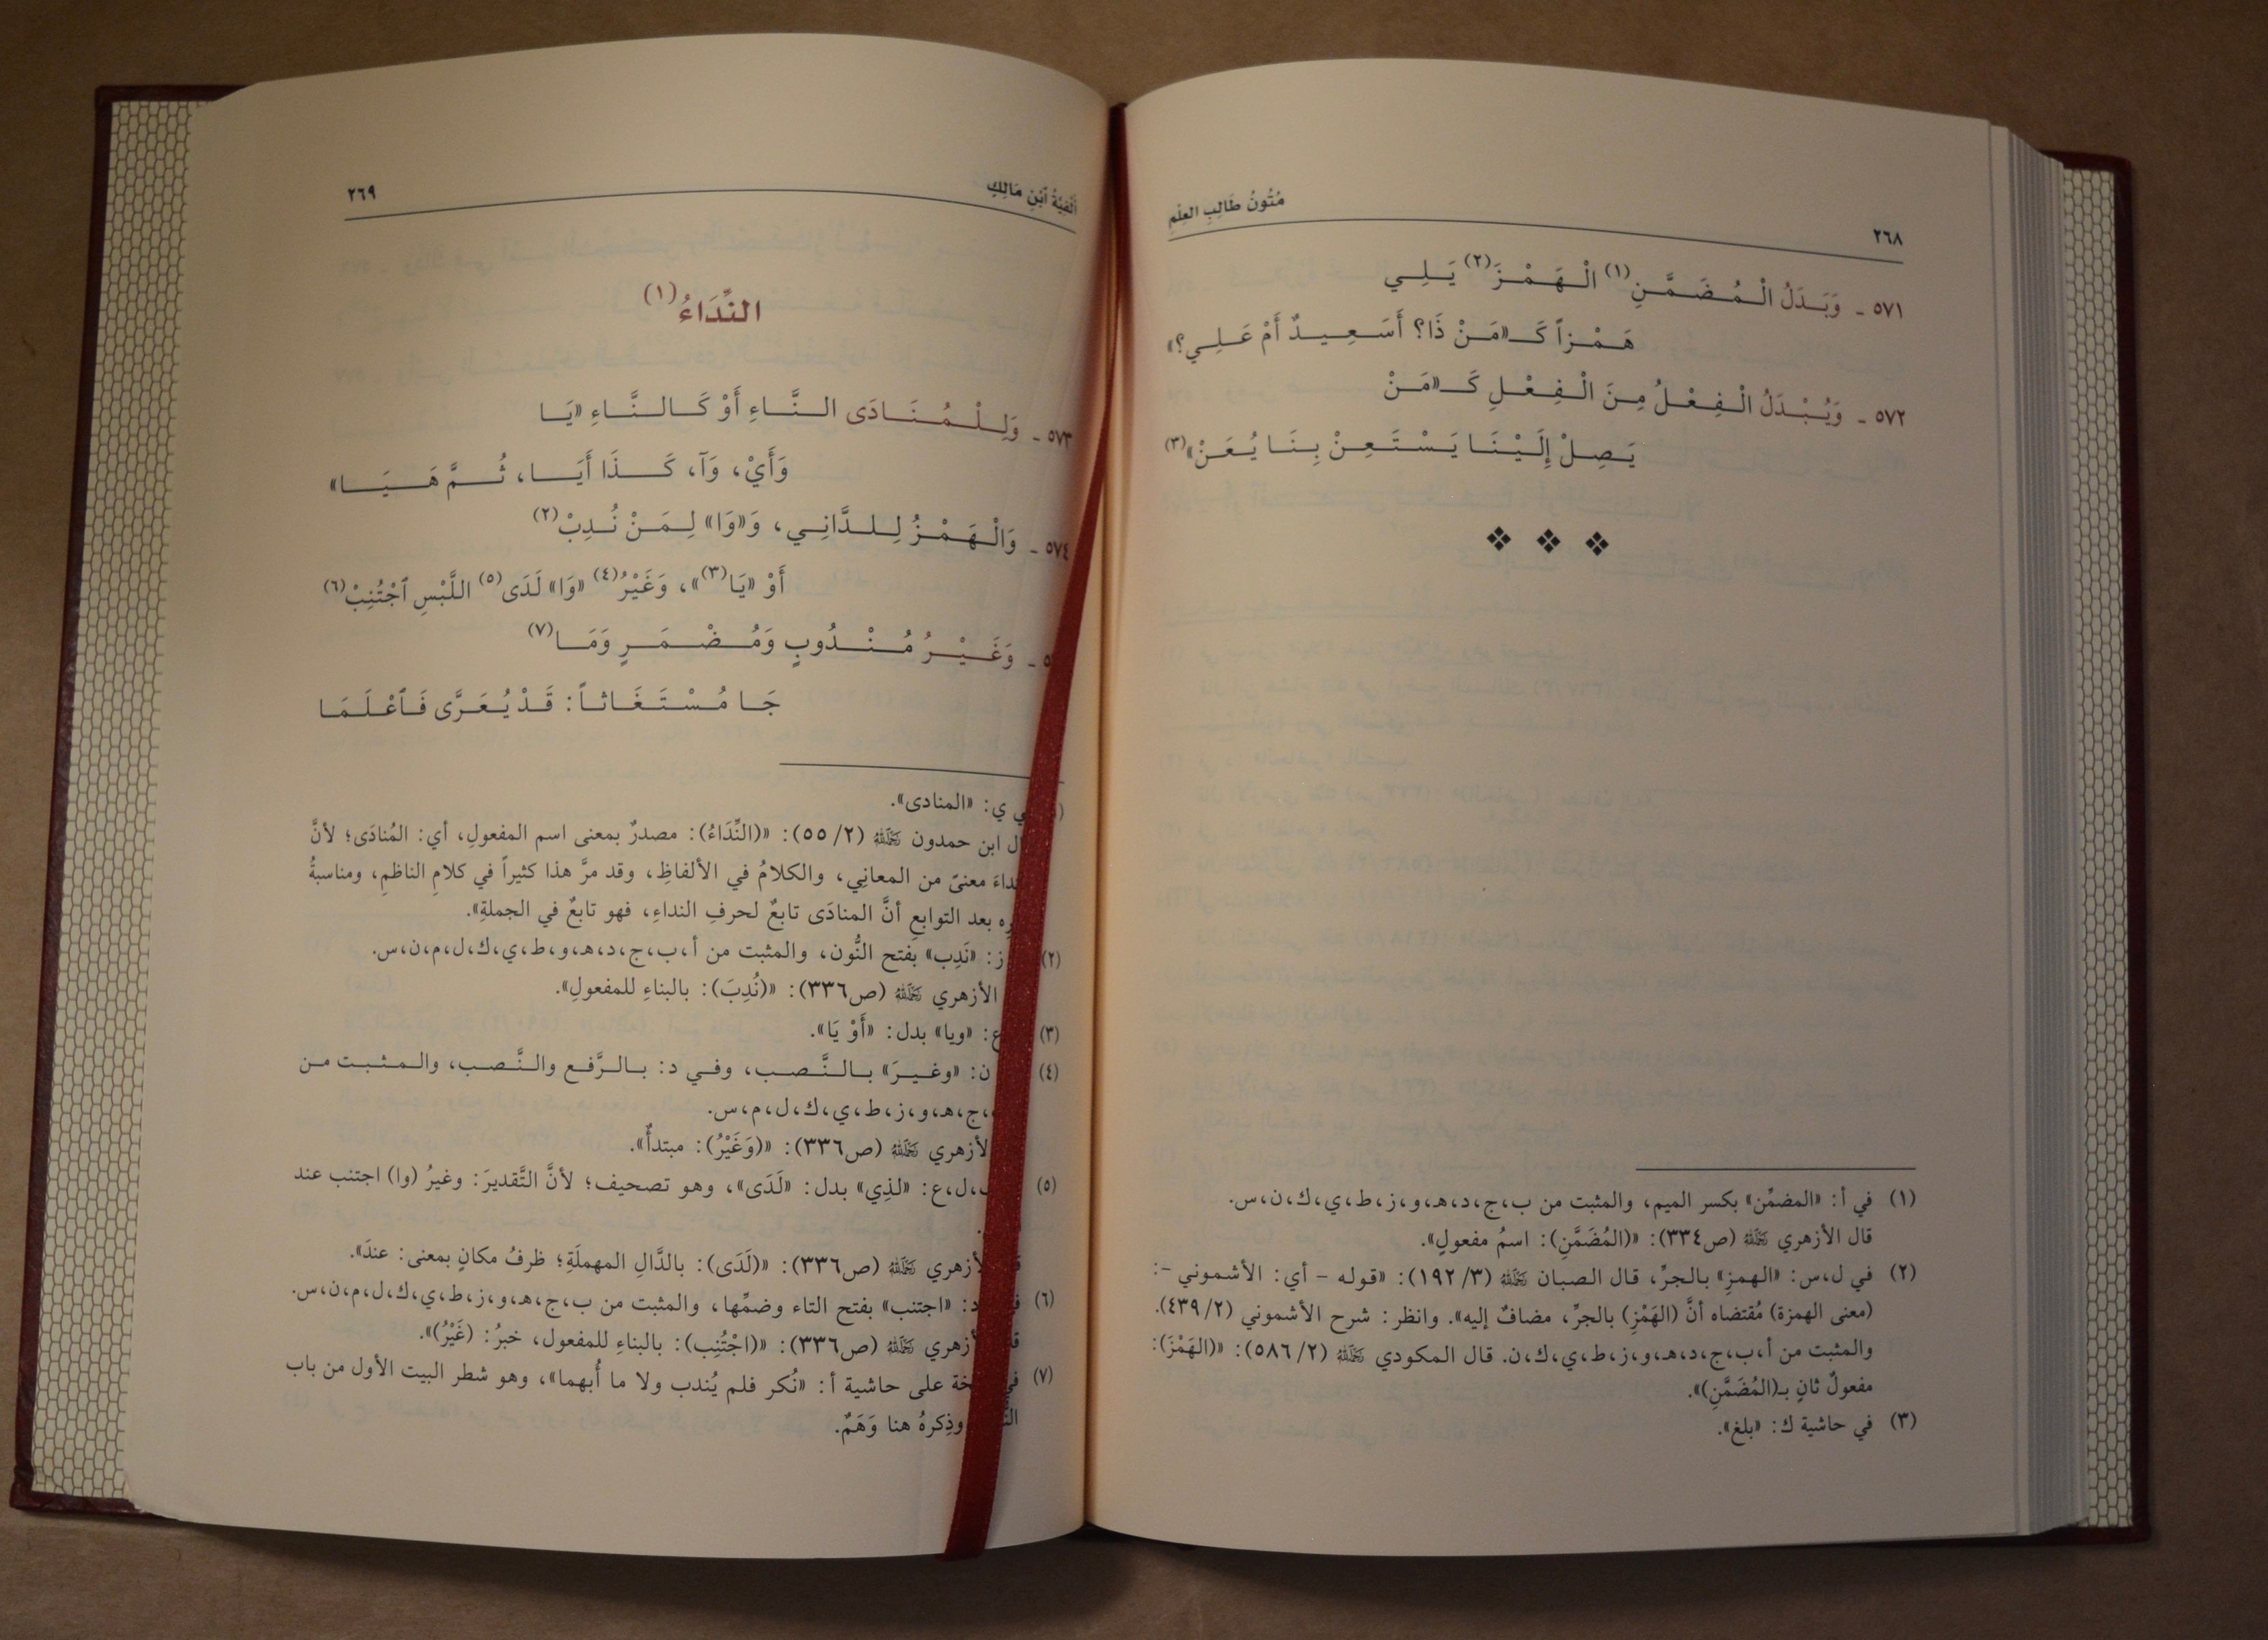 مُتُونُ طَالِبِ العِلْمِ
٢٦٨
٥٧١ ـ وَبَدَلُ الْمُضَمَّنِ(١) الْهَمْزَ(٢) يَلِي
هَمْزاً كَـ«مَنْ ذَا؟ أَسَعِيدٌ أَمْ عَلِي؟»
٥٧٢ ـ وَيُبْدَلُ الْفِعْلُ مِنَ الْفِعْلِ كَـ«مَنْ
يَصِلْ إِلَيْنَا يَسْتَعِنْ بِنَا يُعَنْ»(٣)
(١) في أ: «المضمِّن» بكسر الميم، والمثبت من ب،ج،د،هـ،و،ز،ط،ي،ك،ن،س.
قال الأزهري ﵀ (ص٣٣٤): «(المُضَمَّنِ): اسمُ مفعولٍ».
(٢) في ل،س: «الهمزِ» بالجرِّ، قال الصبان ﵀ (٣/ ١٩٢): «قوله - أي: الأشموني -:
(معنى الهمزة) مُقتضاه أنَّ (الهَمْزِ) بالجرِّ، مضافٌ إليه». وانظر: شرح الأشموني (٢/ ٤٣٩).
والمثبت من أ،ب،ج،د،هـ،و،ز،ط،ي،ك،ن. قال المكودي ﵀ (٢/ ٥٨٦): «(الهَمْزَ):
مفعولٌ ثانٍ بـ(المُضَمَّنِ)».
(٣) في حاشية ك: «بلغ».
أَلْفِيَّةُ ٱبْنِ مَالِكٍ
٢٦٩
النِّدَاءُ(١)
٥٧٣ ـ وَلِلْمُنَادَى النَّاءِ أَوْ كَالنَّاءِ «يَا
وَأَيْ، وَآ، كَذَا أَيَا، ثُمَّ هَيَا»
٥٧٤ ـ وَالْهَمْزُ لِلدَّانِي، وَ«وَا» لِمَنْ نُدِبْ(٢)
أَوْ «يَا(٣)»، وَغَيْرُ(٤) «وَا» لَدَى(٥) اللَّبْسِ ٱجْتُنِبْ(٦)
ـ وَغَيْرُ مُنْدُوبٍ وَمُضْمَرٍ وَمَا(٧)
جَا مُسْتَغَاثاً: قَدْ يُعَرَّى فَٱعْلَمَا
ي: «المنادى».
ابن حمدون ﵀ (٢/ ٥٥): «(النِّدَاءُ): مصدرٌ بمعنى اسم المفعولِ، أي: المُنادَى؛ لأنَّ
معنىً من المعانِي، والكلامُ في الألفاظِ، وقد مرَّ هذا كثيراً في كلامِ الناظمِ، ومناسبةُ
بعد التوابعِ أنَّ المنادَى تابعٌ لحرفِ النداءِ، فهو تابعٌ في الجملةِ».
(٢) ز: «نَدِب» بفتح النُّون، والمثبت من أ،ب،ج،د،هـ،و،ط،ي،ك،ل،م،ن،س.
الأزهري ﵀ (ص٣٣٦): «(نُدِبَ): بالبناءِ للمفعولِ».
(٣) ع: «ويا» بدل: «أَوْ يَا».
(٤) ن: «وغيرَ» بالنَّصب، وفي د: بالرَّفع والنَّصب، والمثبت من
،ج،هـ،و،ز،ط،ي،ك،ل،م،س.
الأزهري ﵀ (ص٣٣٦): «(وَغَيْرُ): مبتدأٌ».
(٥) ،ل،ع: «لذِي» بدل: «لَدَى»، وهو تصحيف؛ لأنَّ التَّقديرَ: وغيرُ (وا) اجتنب عند
الأزهري ﵀ (ص٣٣٦): «(لَدَى): بالدَّالِ المهملَةِ؛ ظرفُ مكانٍ بمعنى: عندَ».
(٦) د: «اجتنب» بفتح التاء وضمِّها، والمثبت من ب،ج،هـ،و،ز،ط،ي،ك،ل،م،ن،س.
الأزهري ﵀ (ص٣٣٦): «(اجْتُنِب): بالبناءِ للمفعول، خبرُ: (غَيْرُ)».
(٧) على حاشية أ: «نُكر فلم يُندب ولا ما أُبهما»، وهو شطر البيت الأول من باب
وذِكرهُ هنا وَهَمٌ.